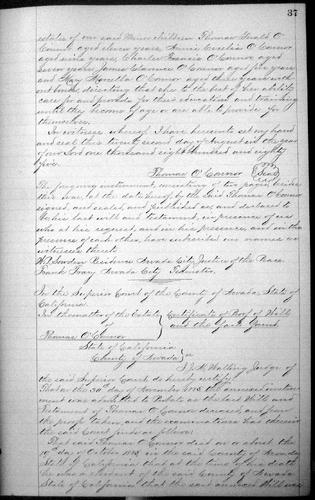 37
estates of our said Minor children Thomas Gerald O'
Connor aged eleven years, Annie Cecelia O'Connor
aged nine years, Charles Francis O'Connor aged
seven years, James Clarence O'Connor aged five years
and Mary Monetta O'Connor aged three years with
out bonds, directing that she to the best of her ability
care for and provide for their education and training
until they become of age or are able to provide for
themselves.
In witness whereof I have hereunto set my hand
and seal this twenty second day of August in the year
of our Lord one thousand eight hundred and eighty
five.
Thomas O'Connor Seal
The foregoing instrument, consisting of two pages besides
this was, at the date hereof, by the said Thomas O'Connor
signed and sealed and published as and declared to
be his last will and testament, in presence of us
who at his request, and in his presence, and in the
presence of each other, have subscribed our names as
witnesses thereto
Sowden Residence Nevada City Justice of the Peace.
Frank Nevada City
In the Superior Court of the County of Nevada, State of
California.
In the matter of the Estate
of
Thomas O'Connor
Certificate of Proof of Will
and the facts found
State of California
County of Nevada ss
I, J. M. Walling Judge of
the said Superior Court do hereby certify:
That on the 30th day of November 1885 the annexed instru=
ment was admitted to Probate as the last Will and
Testament of Thomas O'Connor deceased, and from
the proofs taken, and the examinations had therein
the said Court finds as follows:
That said Thomas O'Connor died on or about the
day of October 1885 in the County of Nevada
State of California that at the time of his death
he was a resident of the said County of Nevada
State of California that the said annexed Will was